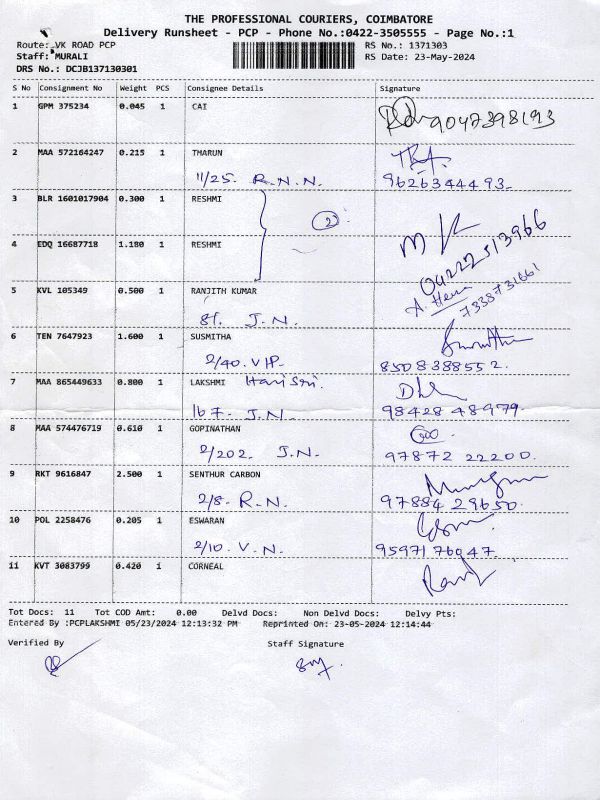 THE PROFESSIONAL COURIERS, COIMBATORE
Delivery Runsheet - PCP - Phone No.:0422-3505555 - Page No.:1
Route: VK ROAD PCP RS No.: 1371303
Staff: MURALI RS Date: 23-May-2024
DRS No.: DCJB137130301
S No Consignment No Weight PCS Consignee Details Signature
1 GPM 375234 0.045 1 CAI 9047398193
2 MAA 572164247 0.215 1 THARUN
11/25. R.N.N. 9626344493
3 BLR 1601017904 0.300 1 RESHMI
2
4 EDQ 16687718 1.180 1 RESHMI
04222513966
5 KVL 105349 0.500 1 RANJITH KUMAR 7338731661
81. J.N.
6 TEN 7647923 1.600 1 SUSMITHA
2/40. V.P. 8508388552.
7 MAA 865449633 0.800 1 LAKSHMI Hari Sri.
167. J.N. 98428 48979.
8 MAA 574476719 0.610 1 GOPINATHAN
2/202. J.N. 97872 22200.
9 RKT 9616847 2.500 1 SENTHUR CARBON
2/8. R.N. 97884 29650.
10 POL 2258476 0.205 1 ESWARAN
2/10. V.N. 9597176947.
11 KVT 3083799 0.420 1 CORNEAL
Tot Docs: 11 Tot COD Amt: 0.00 Delvd Docs: Non Delvd Docs: Delvy Pts:
Entered By :PCPLAKSHMI 05/23/2024 12:13:32 PM Reprinted On: 23-05-2024 12:14:44
Verified By Staff Signature